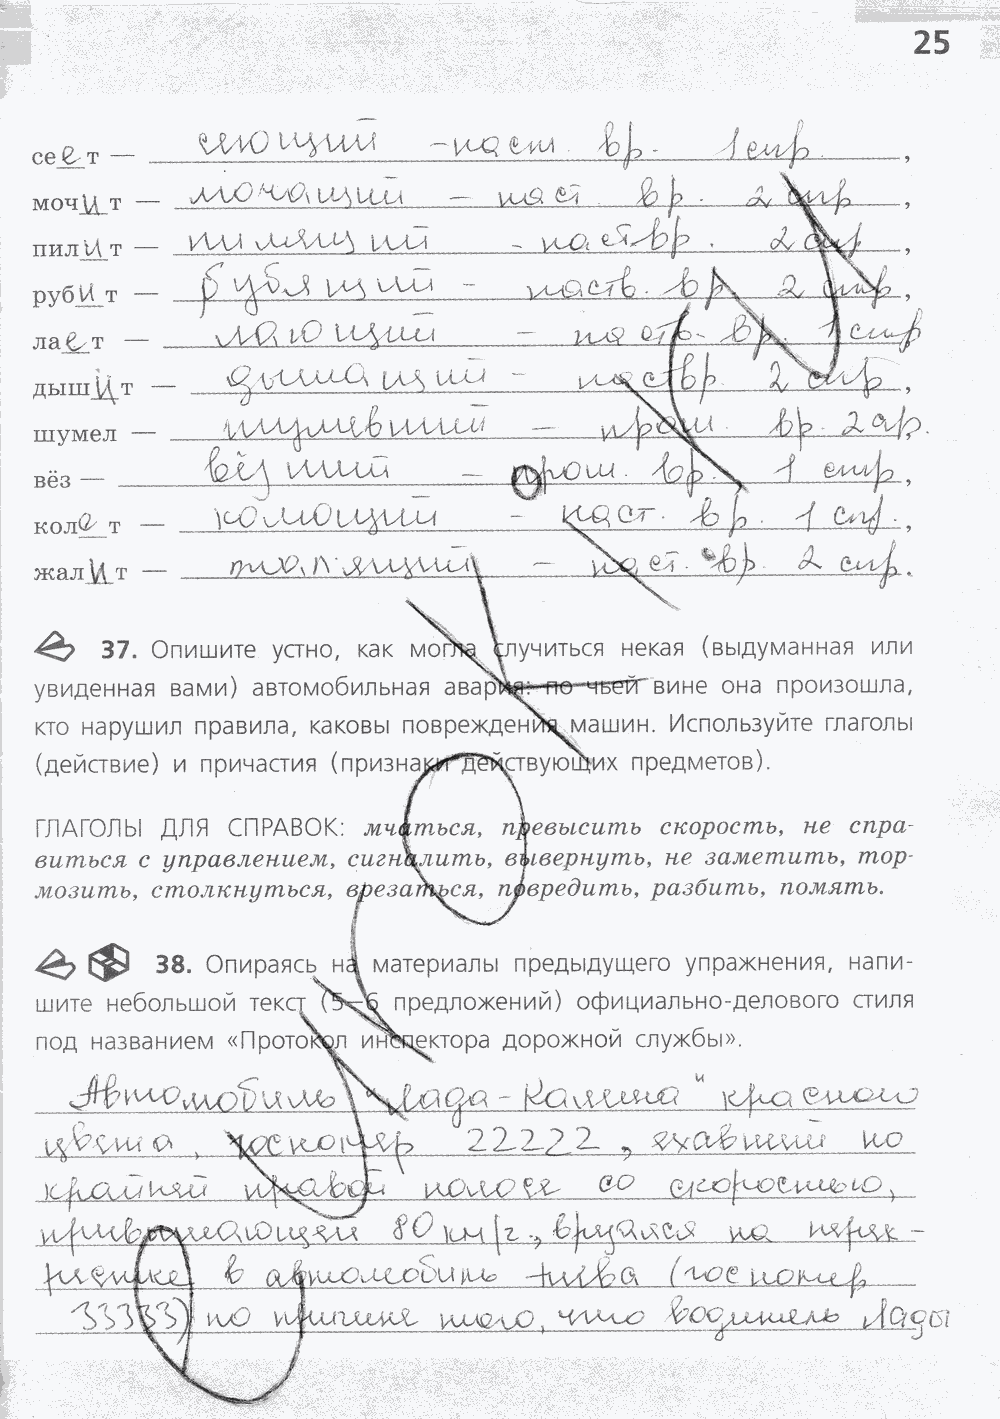 25
сеет — сеющий - наст. вр. 1 спр.,
мочит — мочащий - наст. вр. 2 спр,
пилит — пилящий - наст вр. 2 спр,
рубит — рубящий - наств. вр 2 спр,
лает — лающий - наств. вр. 1 спр
дышит — дышащий - наст вр. 2 спр,
шумел — шумевший - прош. вр. 2 спр.
вёз — вёзший - прош. вр. 1 спр,
колет — колющий - наст. вр. 1 спр.,
жалит — жалящий - наст. вр. 2 спр.
37. Опишите устно, как могла случиться некая (выдуманная или
увиденная вами) автомобильная авария: по чьей вине она произошла,
кто нарушил правила, каковы повреждения машин. Используйте глаголы
(действие) и причастия (признаки действующих предметов).
ГЛАГОЛЫ ДЛЯ СПРАВОК: мчаться, превысить скорость, не спра-
виться с управлением, сигналить, вывернуть, не заметить, тор-
мозить, столкнуться, врезаться, повредить, разбить, помять.
38. Опираясь на материалы предыдущего упражнения, напи-
шите небольшой текст (5—6 предложений) официально-делового стиля
под названием «Протокол инспектора дорожной службы».
Автомобиль "Лада-Калина" красного
цвета, госномер 22222, ехавший по
крайней правой полосе со скоростью,
привышающей 80 км/г., врезался на перек-
рестке в автомобиль Нива (госномер
33333) по причине того, что водитель Лады